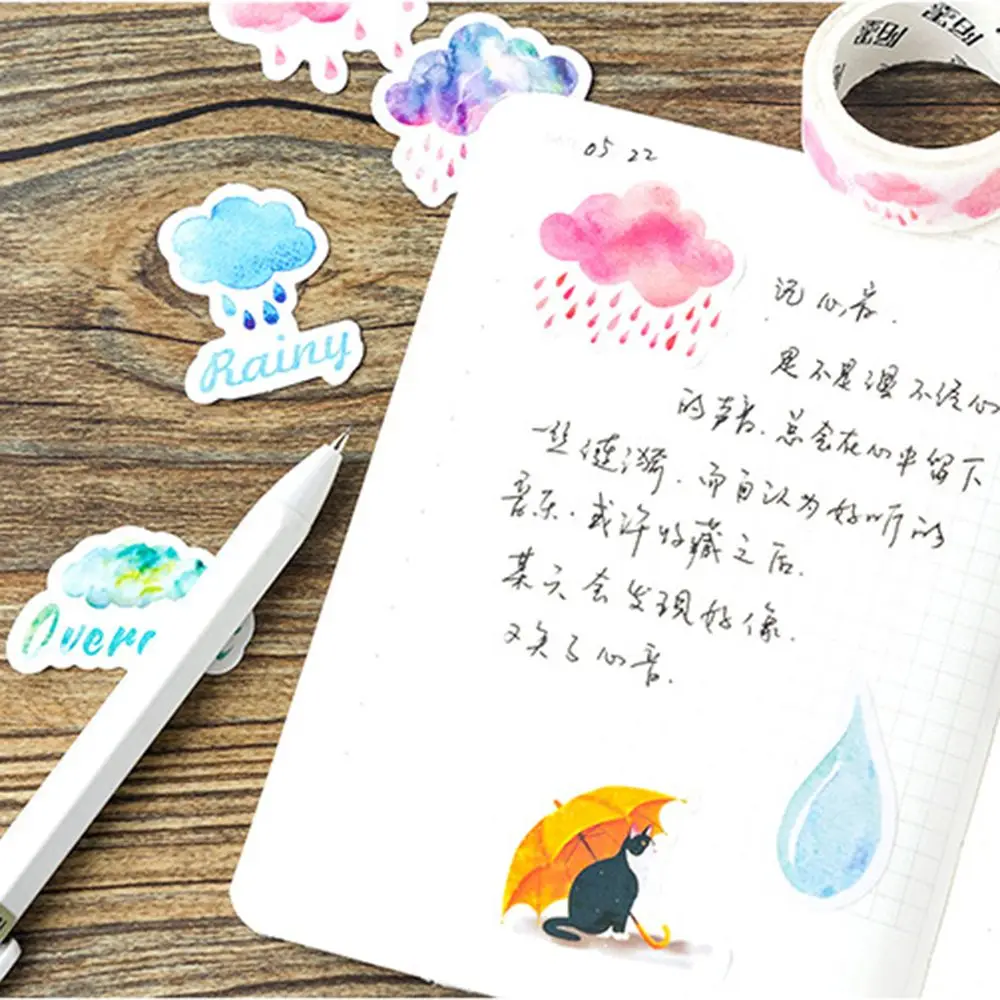 05 22
记心音.
是不是漫不经心
的声音.总会在心中留下
一丝涟漪.而自认为好听的
音乐.或许收藏之后.
某天会发现好像.
又失了心音.
Rainy
Over
陌墨
陌墨